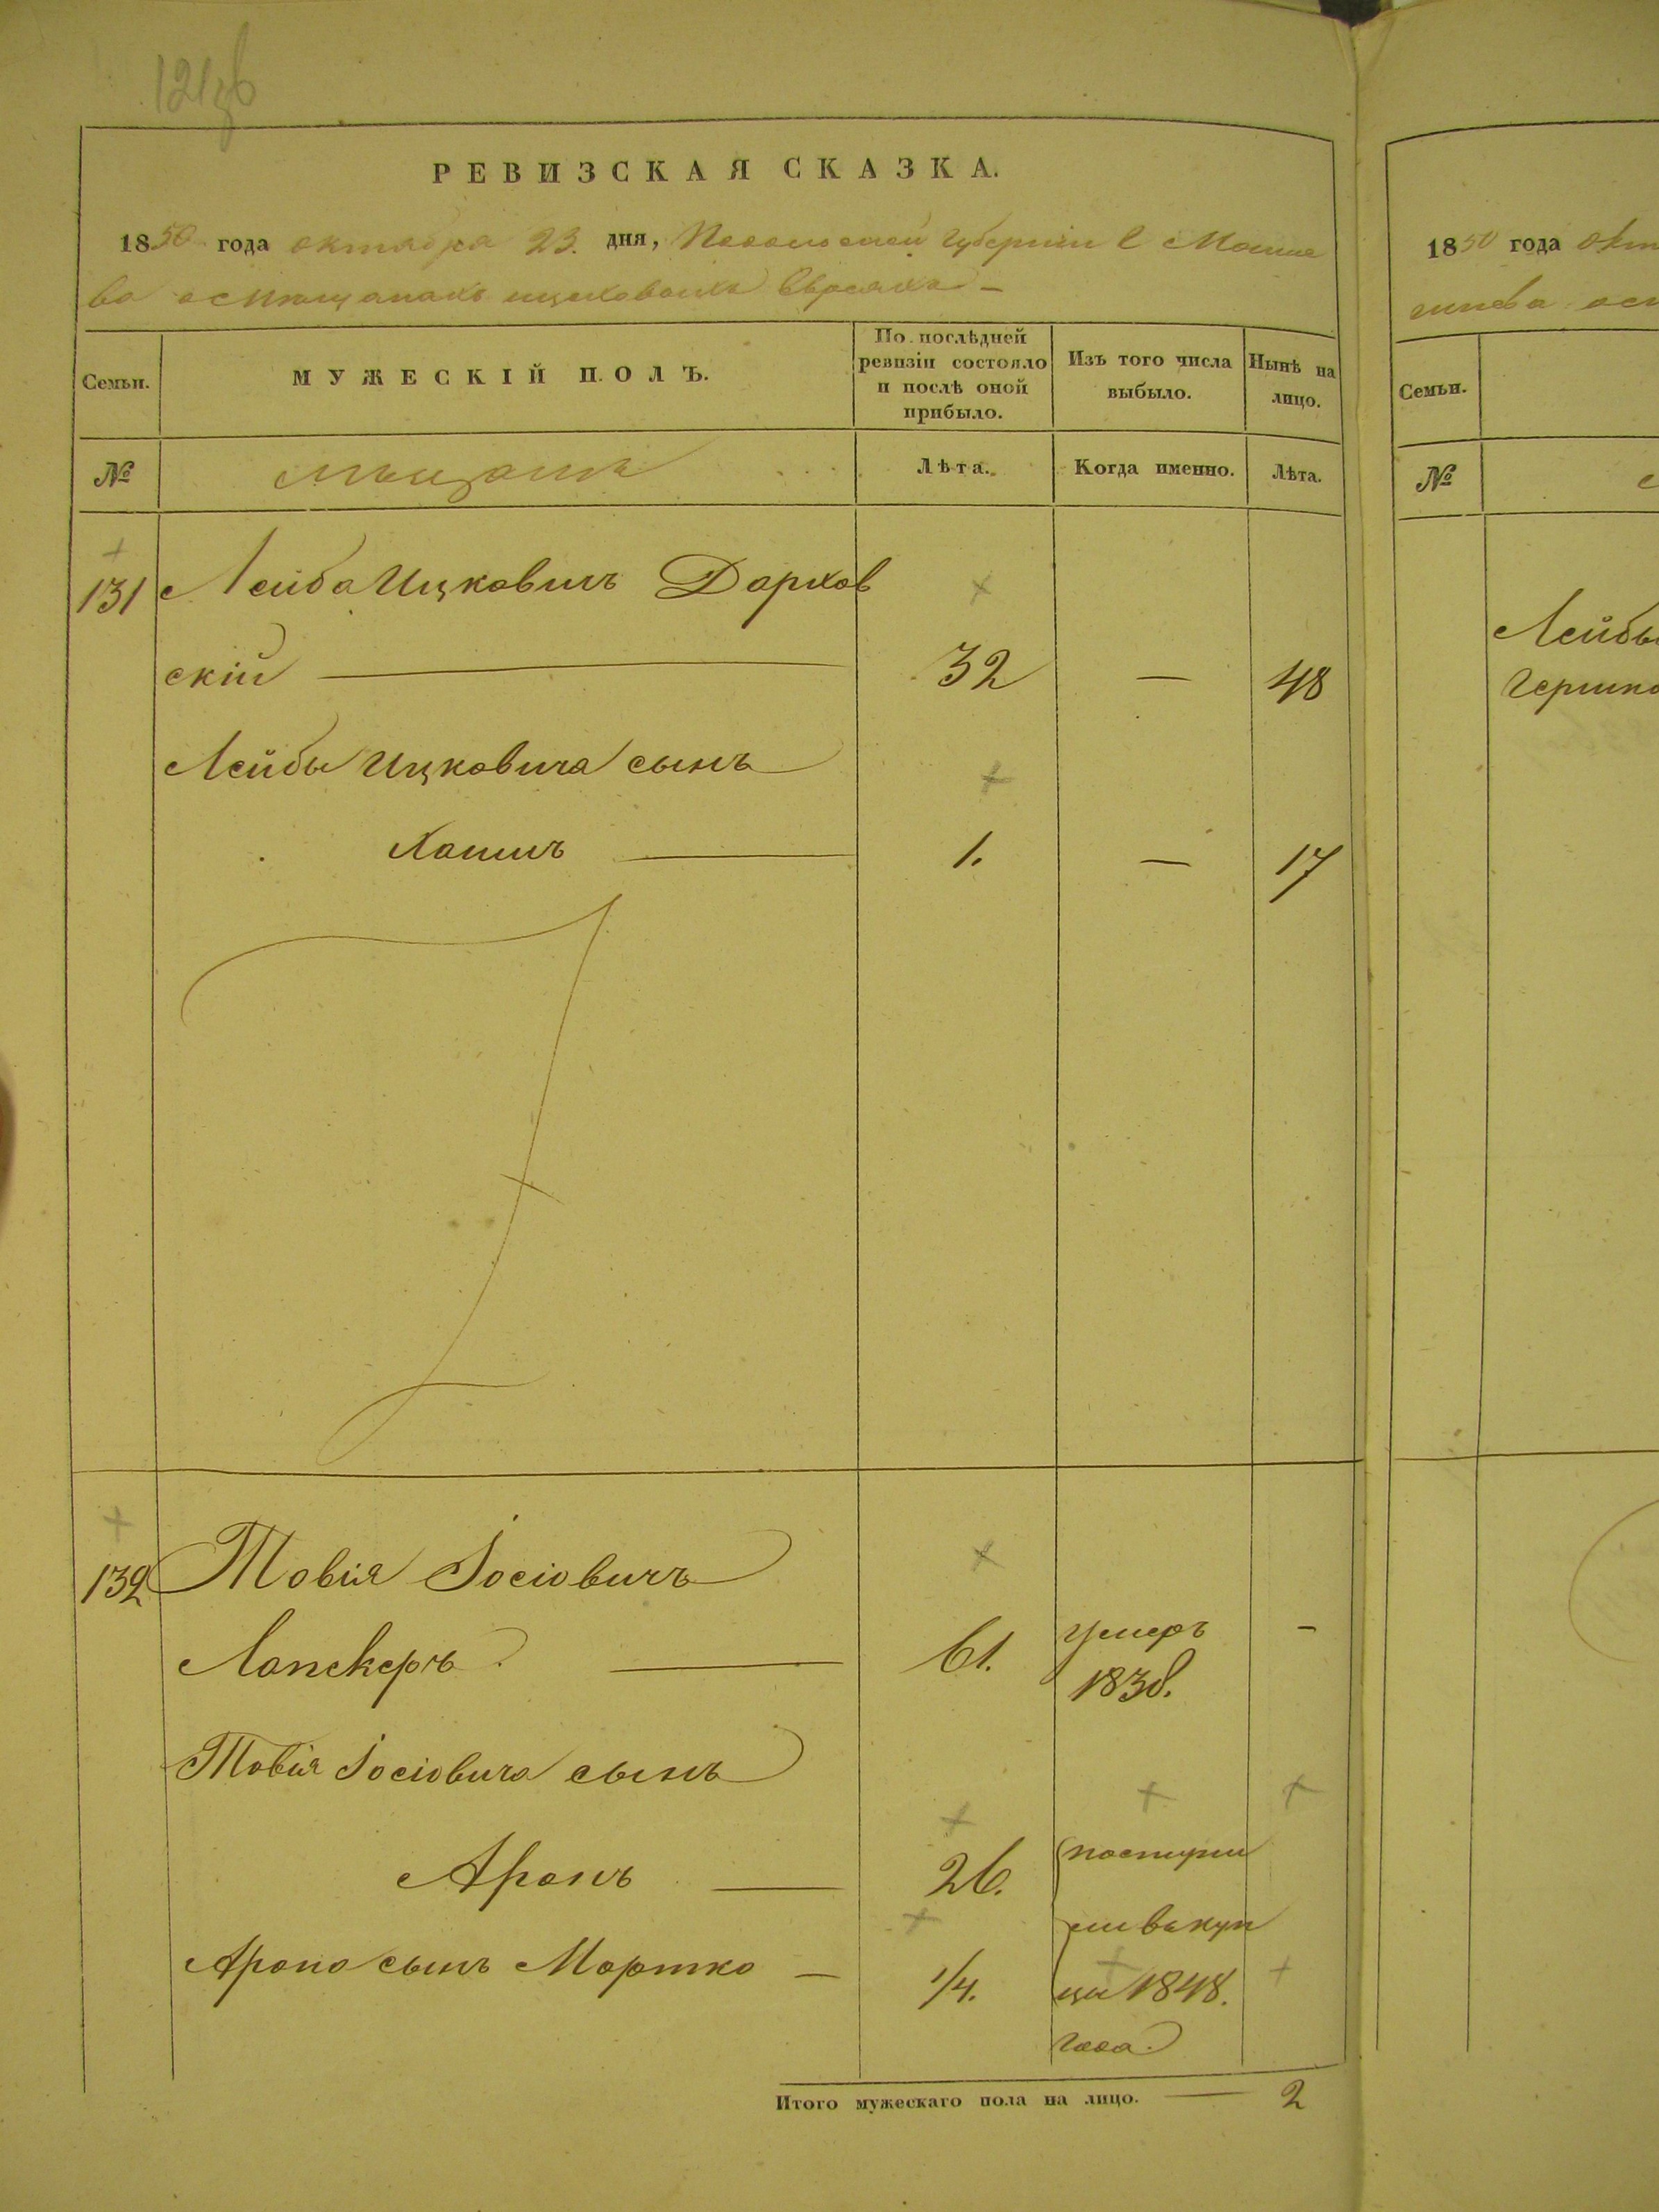 РЕВИЗСКАЯ СКАЗКА.
1850 года октября 23. дня, Подольской Губерніи
евреяхъ –
Семьи.
МУЖЕСКІЙ ПОЛЪ.
По послѣдней
ревизіи состояло
и послѣ оной
прибыло.
Изъ того числа
выбыло.
Нынѣ на
лицо.
№
мѣщане
Лѣта.
Когда именно.
Лѣта.
131 Лейба Ицковичъ Дархов
скій — 32 — 48
Лейбы Ицковича сынъ
Хаимъ — 1. — 17
132 Товія Іосіовичъ
Лапскеръ — 61. умеръ –
1838.
Товія Іосіовича сынъ
Аронъ — 26. поступи
ли въ куп
Арона сынъ Мортко — 1/4. цы 1848.
года.
Итого мужескаго пола на лицо. — 2
1850 года окт
Семьи.
№
Лейбы
Гершко